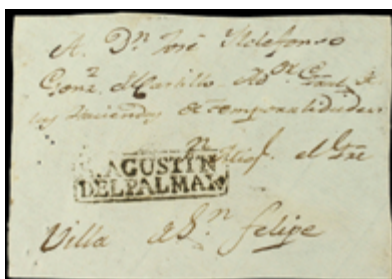 A. Dn José Ildefonso
Gonz.z del Castillo
las Haciendas de temporalidades
el
AGUSTIN
DEL PALMAR
Villa de Sn felipe